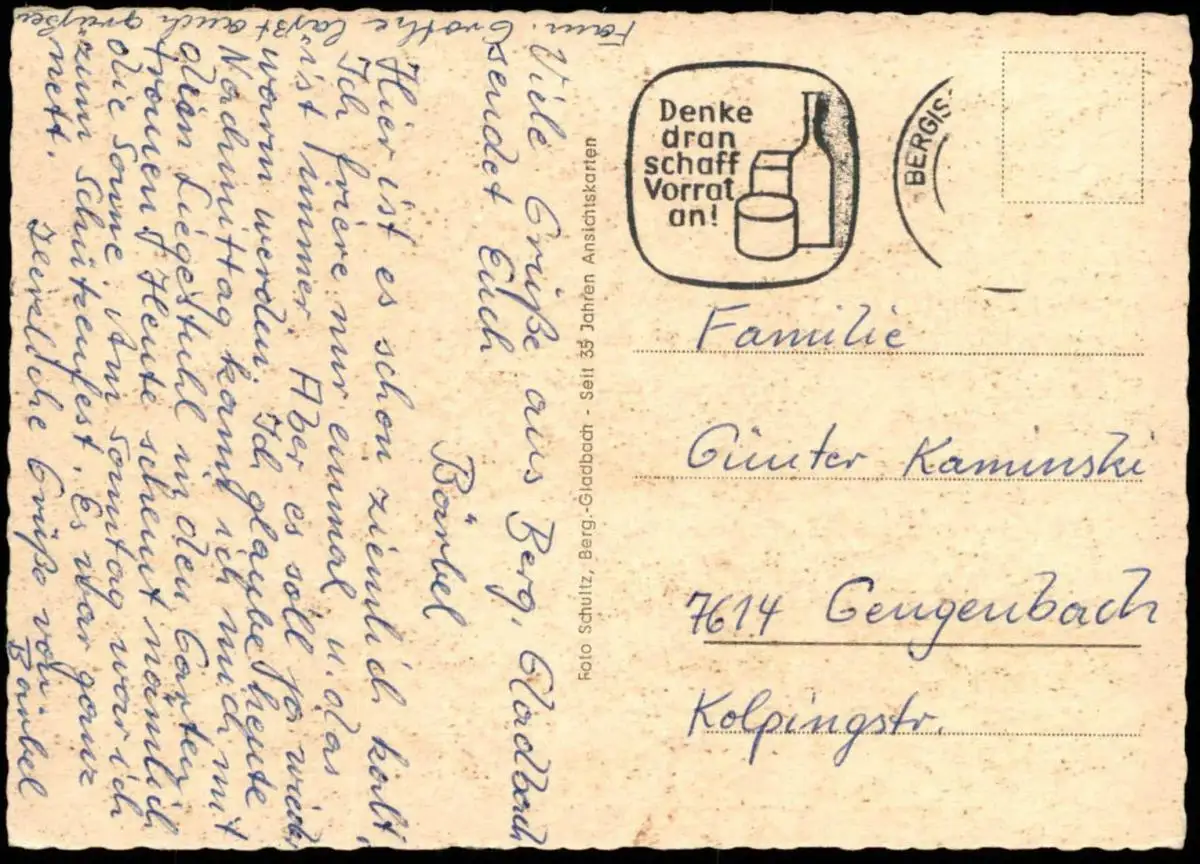 Viele Grüße aus Berg. Gladbach
sendet Euch
Bärbel
Hier ist es schon ziemlich kalt,
Ich friere nur einmal u. das
ist immer. Aber es soll ja wieder
warm werden. Ich glaube heute
Nachmittag kann ich mich mit
dem Liegestuhl in den Garten
trauen. Heute scheint nämlich
die Sonne. Am Sonntag war ich
zum Schützenfest. Es war ganz
nett.
Herzliche Grüße von
Bärbel
Fam. Grothe läßt auch grüßen
Foto Schultz, Berg.-Gladbach - Seit 35 Jahren Ansichtskarten
Denke
dran
schaff
Vorrat
an!
BERGIS
Familie
Günter Kaminski
7614 Gengenbach
Kolpingstr.